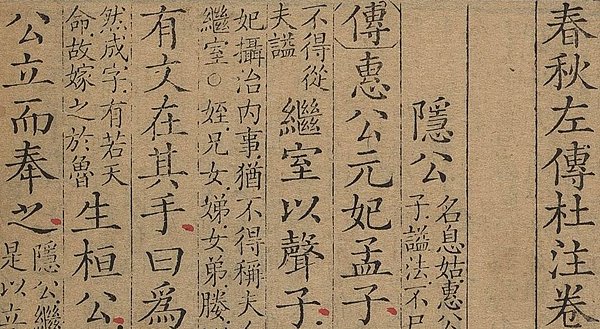 春秋左傳杜注卷
隱公
名息姑惠公
子謚法不尸
傳惠公元妃孟子
不得從
夫謚
繼室以聲子
妃攝治内事猶不得稱夫
繼室○姪兄女娣女弟媵
有文在其手曰爲
然成字有若天
命故嫁之於魯
生桓公
公立而奉之
隱公繼
是以立